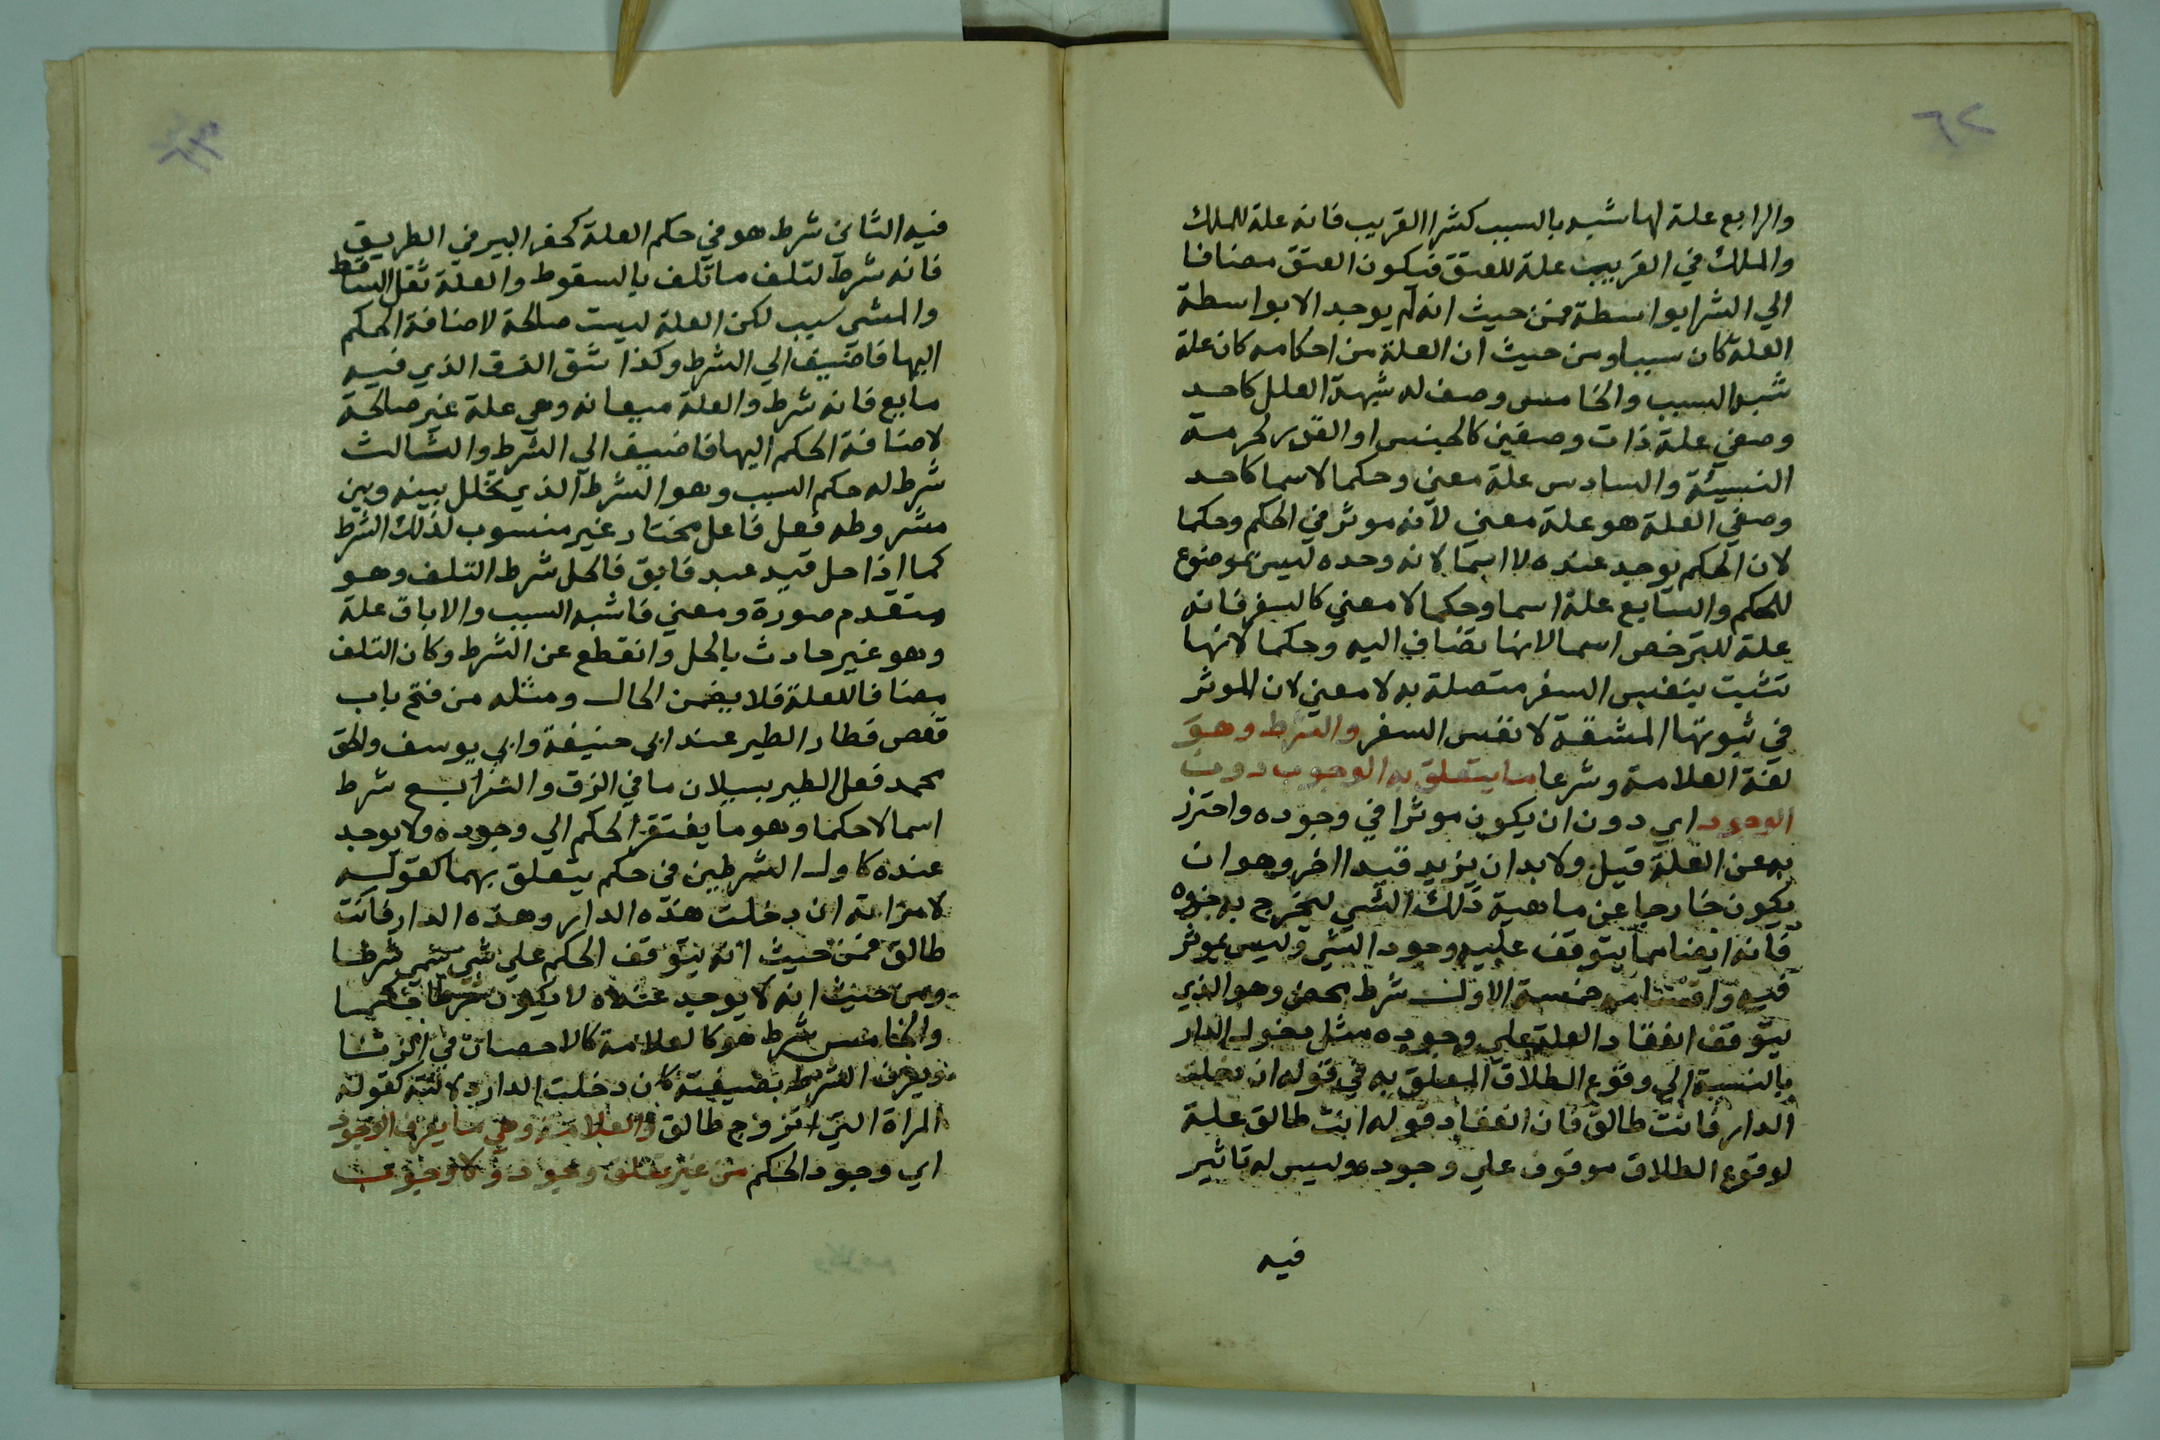 والرابع علة لها شبه بالسبب كشرا القريب فانه علة للملك
والملك في القريب علة للعتق فيكون العتق مضافا
الي الشرا بواسطة فمن حيث انه لم يوجد الا بواسطة
العلة كان سببا ومن حيث ان العلة من احكامه كان علة
تشبه السبب والخامس وصف له شبهة العلل كاحد
وصفي علة ذات وصفين كالجنس او القدر لحرمة
النسيئة والسادس علة معني وحكما لا اسما كاحد
وصفي العلة هو علة معني لانه موثر في الحكم وحكما
لان الحكم يوجد عنده لا اسما لانه وحده ليس بموضوع
للحكم والسابع علة اسما وحكما لا معني كالسفر فانه
علة للترخص اسما لانها تضاف اليه وحكما لانها
تثبت بنفس السفر متصلة به لا معني لان الموثر
في ثبوتها المشقة لا نفس السفر والشرط وهو
لغة العلامة وشرعا ما يتعلق به الوجوب دون
الوجود اي دون ان يكون موثرا في وجوده واحترز
به عن العلة قيل ولا بد ان يزيد قيدا اخر وهو ان
يكون خارجا عن ماهية ذلك الشي ليخرج به جزوه
فانه ايضا مما يتوقف عليه وجود الشي وليس بموثر
فيه واقسامه خمسة الاول شرط محض وهو الذي
يتوقف انعقاد العلة علي وجوده مثل دخول الدار
بالنسبة الي وقوع الطلاق المعلق به في قوله ان دخلت
الدار فانت طالق فان انعقاد قوله انت طالق علة
لوقوع الطلاق موقوف علي وجوده وليس له تاثير
فيه
فيه الثاني شرط هو في حكم العلة كحفر البير في الطريق
فانه شرط لتلف ما تلف بالسقوط والعلة ثقل الساقط
والمشي سبب لكن العلة ليست صالحة لاضافة الحكم
اليها فاضيف الي الشرط وكذا شق الزق الذي فيه
مايع فانه شرط والعلة ميعانه وهي علة غير صالحة
لاضافة الحكم اليها فاضيف الي الشرط والثالث
شرط له حكم السبب وهو الشرط الذي يتخلل بينه وبين
مشروطه فعل فاعل مختار غير منسوب لذلك الشرط
كما اذا حل قيد عبد فابق فالحل شرط التلف وهو
متقدم صورة ومعني فاشبه السبب والاباق علة
وهو غير حادث بالحل وانقطع عن الشرط وكان التلف
مضافا للعلة فلا يضمن الحال ومثله من فتح باب
قفص فطار الطير عند ابي حنيفة وابي يوسف والحق
محمد فعل الطير بسيلان ما في الزق والرابع شرط
اسما لا حكما وهو ما يفتقر الحكم الي وجوده ولا يوجد
عنده كاول الشرطين في حكم يتعلق بهما كقوله
لامراته ان دخلت هذه الدار وهذه الدار فانت
طالق فمن حيث انه يتوقف الحكم علي شي سمي شرطا
ومن حيث انه لا يوجد عنده لا يكون شرطا حكما
والخامس شرط هو كالعلامة كالاحصان في الزنا
ويعرف الشرط بصيغته كان دخلت الدار ودلالته كقوله
المراة التي اتزوج طالق والعلامة وهي ما يعرف الوجود
اي وجود الحكم من غير تعلق وجود ولا وجوب